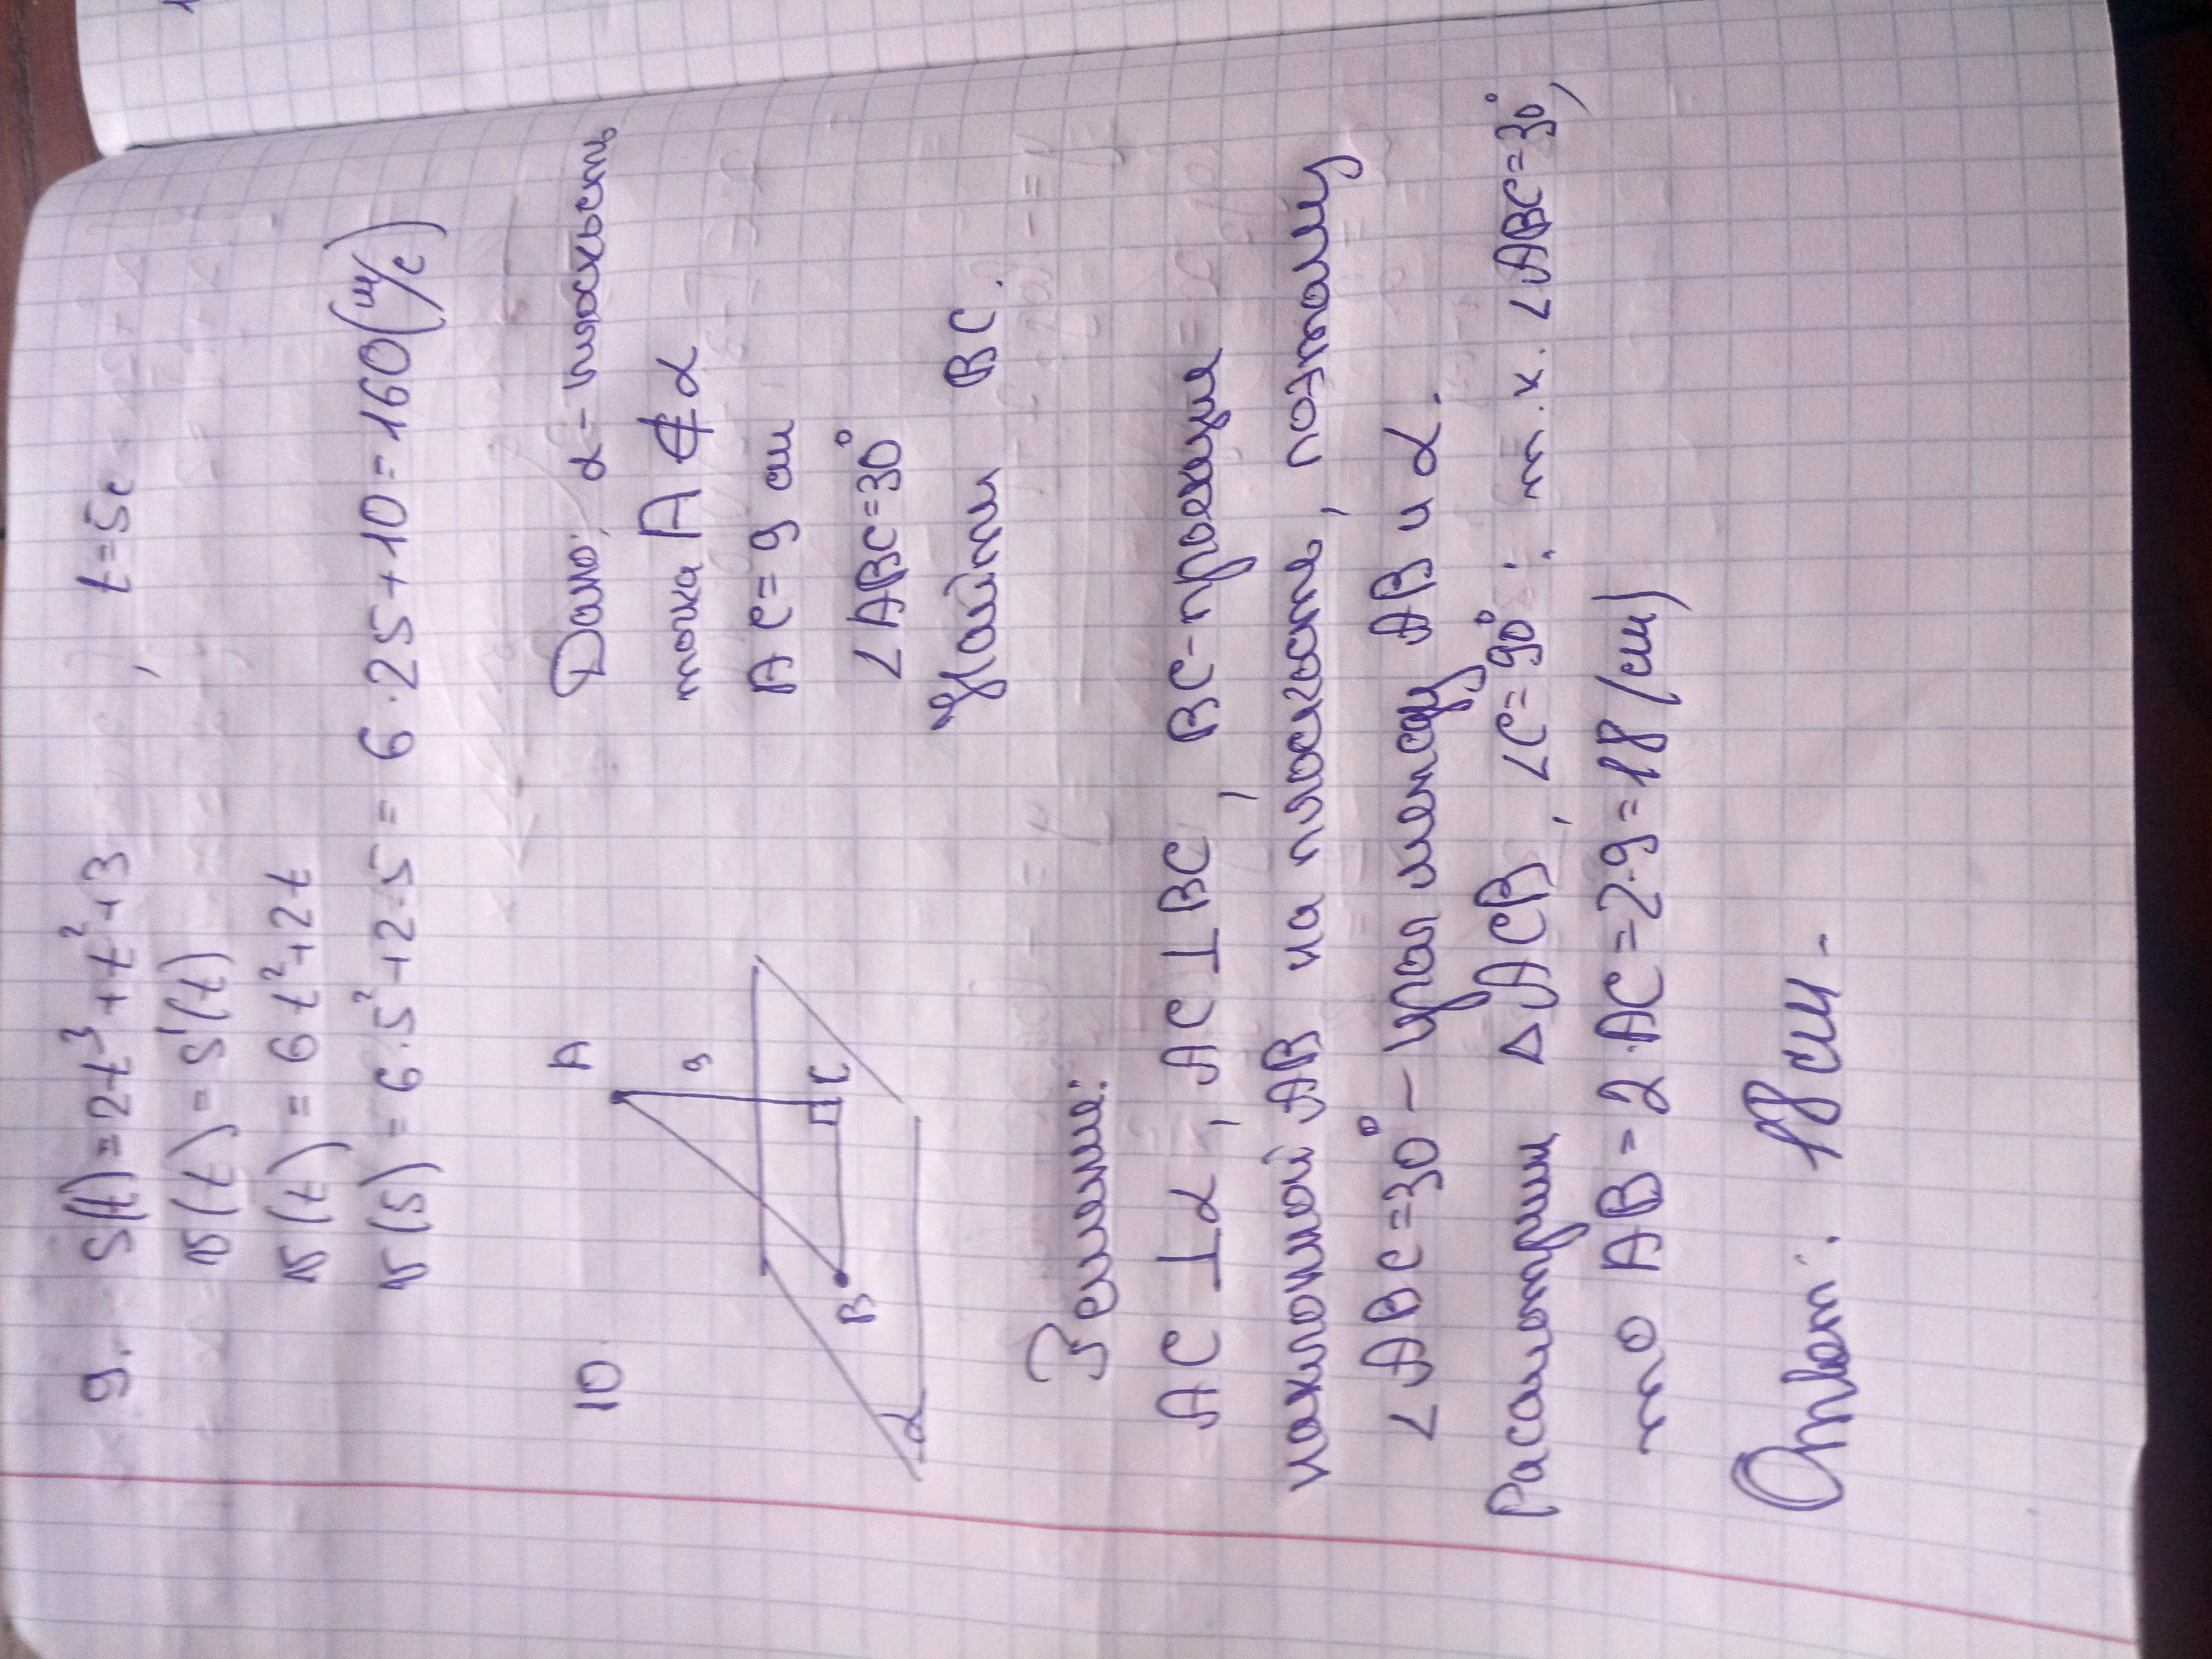 9. S(t)=2t³+t²+3, t=5c
v(t)=S'(t)
v(t)=6t²+2t
v(5)=6·5²+2·5=6·25+10=160(м/с)
10.
Дано: α-плоскость
точка A ∉ α
AC=9 см
∠ABC=30°
Найти BC.
A
9
B
C
α
Решение:
AC⊥α, AC⊥BC, BC-проекция
наклонной AB на плоскость, поэтому
∠ABC=30°- угол между AB и α.
Рассмотрим △ACB, ∠C=90°; т.к. ∠ABC=30°,
то AB=2·AC=2·9=18(см)
Ответ: 18 см.